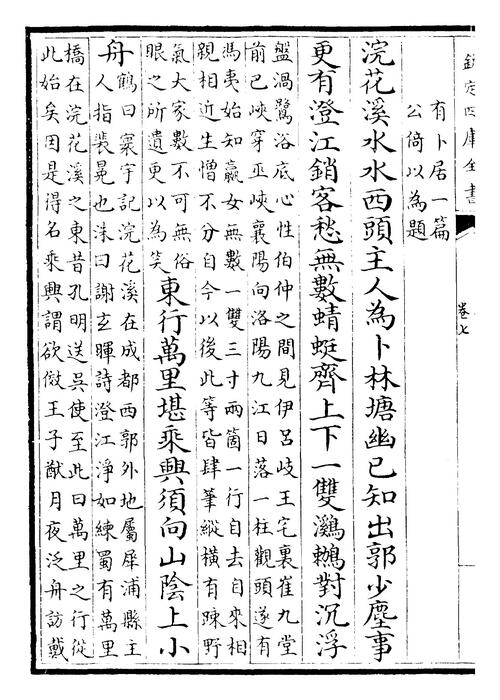 欽定四庫全書
卷七
有卜居一篇
公倚以為題
浣花溪水水西頭主人為卜林塘幽已知出郭少塵事
更有澄江銷客愁無數蜻蜓齊上下一雙鸂鶒對沉浮
盤渦鷺浴底心性伯仲之間見伊呂岐王宅裏崔九堂
前巴峽穿巫峽襄陽向洛陽九江日落一柱觀頭遂有
馮夷始知嬴女無數一雙三寸兩箇一行自去自來相
親相近生憎不分自今以後此等皆肆筆縱橫有踈野
氣大家數不可無俗
眼之所遺更以為笑
東行萬里堪乘興須向山陰上小
舟
鶴曰寰宇記浣花溪在成都西郭外地屬犀浦縣主
人指裴冕也洙曰謝玄暉詩澄江淨如練蜀有萬里
橋在浣花溪之東昔孔明送吳使至此曰萬里之行從
此始矣因是得名乘興謂欲傚王子猷月夜泛舟訪戴